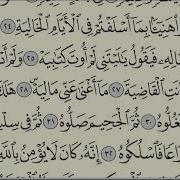 هَنِيٓـَٔۢا بِمَآ أَسْلَفْتُمْ فِى ٱلْأَيَّامِ ٱلْخَالِيَةِ ٢٤
مَالِهِۦ فَيَقُولُ يَٰلَيْتَنِى لَمْ أُوتَ كِتَٰبِيَهْ ٢٥ وَلَمْ أَدْ
انَتِ ٱلْقَاضِيَةَ ٢٧ مَآ أَغْنَىٰ عَنِّى مَالِيَهْ ٢٨ هَلَكَ
غُلُّوهُ ٣٠ ثُمَّ ٱلْجَحِيمَ صَلُّوهُ ٣١ ثُمَّ فِى سِلْ
اعًا فَٱسْلُكُوهُ ٣٢ إِنَّهُۥ كَانَ لَا يُؤْمِنُ بِٱللَّهِ